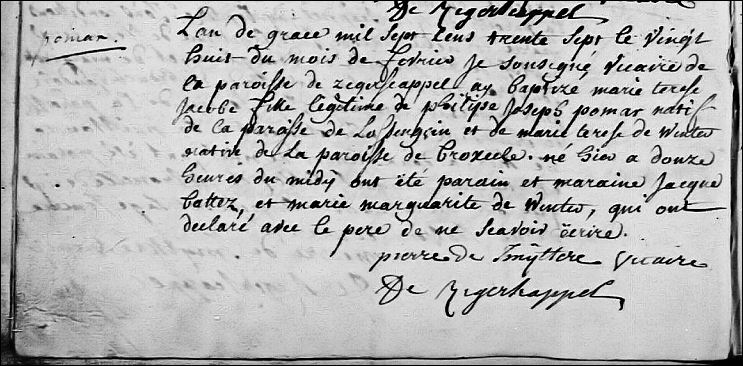 De Zegerscappel
pomar.
L'an de grace mil sept cens trente sept le vingt
huit du mois de fevrier je sousigné vicaire de
la paroisse de zegerscappel ay baptizé marie terese
jacobe fille legitime de philipe joseph pomar natif
de la paroisse de et de marie terese de Winter
native de la paroisse de broxeele. né hier a douze
heures du midy ont été parain et maraine jacque
battez, et marie marguarite de Winter, qui ont
declaré avec le pere de ne scavoir ècrire.
pierre de Smÿttere vicaire
De Zegerskappel